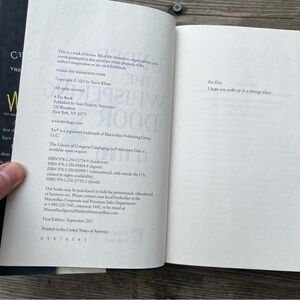 This is a work of fiction. All of the characters, organizations, and
events portrayed in this novel are either products of the
author's imagination or are used fictitiously.
UNDER THE WHISPERING DOOR
Copyright © 2021 by Travis Klune
All rights reserved.
A Tor Book
Published by Tom Doherty Associates
120 Broadway
New York, NY 10271
www.tor-forge.com
Tor® is a registered trademark of Macmillan Publishing Group,
LLC.
The Library of Congress Cataloging-in-Publication Data is
available upon request.
Our books may be purchased in bulk for promotional, educational,
or business use. Please contact your local bookseller or the
Macmillan Corporate and Premium Sales Department
at 1-800-221-7945, extension 5442, or by email at
MacmillanSpecialMarkets@macmillan.com.
First Edition: September 2021
Printed in the United States of America
For Eric.
I hope you woke up in a strange place.